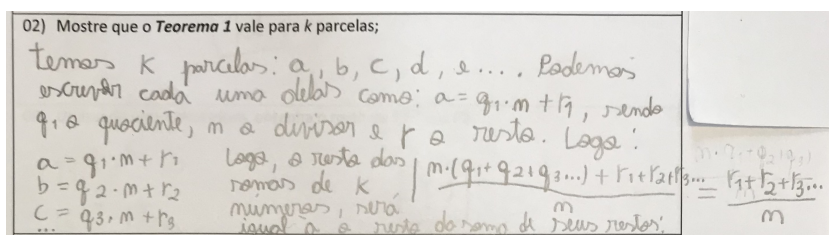 02) Mostre que o Teorema 1 vale para k parcelas;
temos K parcelas: a, b, c, d, e.... Podemos
escrever cada uma delas como: a = q1·m + r1, sendo
q1 o quociente, m o divisor e r o resto. Logo:
a = q1·m + r1
b = q2·m + r2
c = q3·m + r3
...
Logo, o resto das
somas de K
números, será
igual a o resto da soma de seus restos;
m·(q1+q2+q3...) + r1+r2+r3... / m = r1+r2+r3... / m